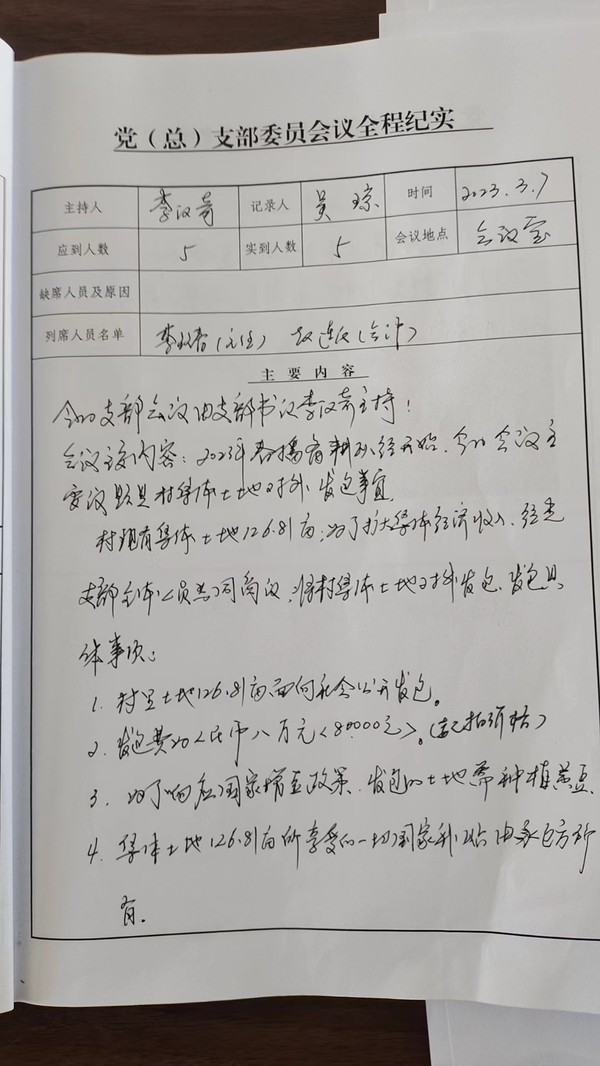 党（总）支部委员会议全程纪实
主持人 李汉奇 记录人 吴琼 时间 2023.3.7
应到人数 5 实到人数 5 会议地点 会议室
缺席人员及原因
列席人员名单 李 (主任) 赵连 (会计)
主要内容
今日支部会议由支部书记李汉奇主持！
会议主要内容：2023年春播备耕已经开始，今日会议主
要议题是村集体土地对外发包事宜
村现有集体土地126.81亩，为了扩大集体经济收入，经党
支部全体人员共同商议，将村集体土地对外发包，发包具
体事项：
1. 村里土地126.81亩面向社会公开发包。
2. 发包费为人民币八万元<80000元>。(起拍价格)
3. 为了响应国家增豆政策，发包的土地需种植黄豆
4. 集体土地126.81亩所享受的一切国家补贴由承包方所
有.